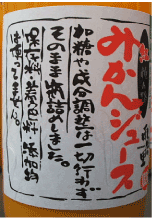 みかんジュース
加糖や成分調整は一切行わず
そのまま瓶詰めしました。
保存料、着色料、添加物
は使ってません。